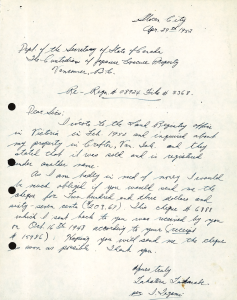 Slocan City
Apr 29th 1952
Dept of the Secretary of State of Canada
The Custodian of Japanese Evacuee Property
Vancouver, B.C.
Re - Reg'n # 08926 File # 8368.
Dear Sir:
I wrote to the Land Registry office
in Victoria in Feb 1952 and enquired about
my property in Crofton, Van. Isle. and they
stated that it was sold and is registered
under another name.
As I am badly in need of money I would
be much obliged if you would send me the
cheque for five hundred and three dollars and
sixty-seven cents ($503.67). The cheque # 6988
which I sent back to you was received by you
on Oct 16th 1947 according to your (receipt
# 1986). Hoping you will send me the cheque
as soon as possible. Thank you.
Yours truly
per